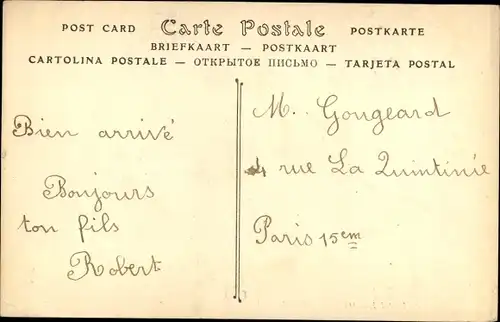 POST CARD Carte Postale POSTKARTE
BRIEFKAART — POSTKAART
CARTOLINA POSTALE — ОТКРЫТОЕ ПИСЬМО — TARJETA POSTAL
Bien arrivé
Bonjours
ton fils
Robert
M. Gougeard
4 rue La Quintinie
Paris 15em